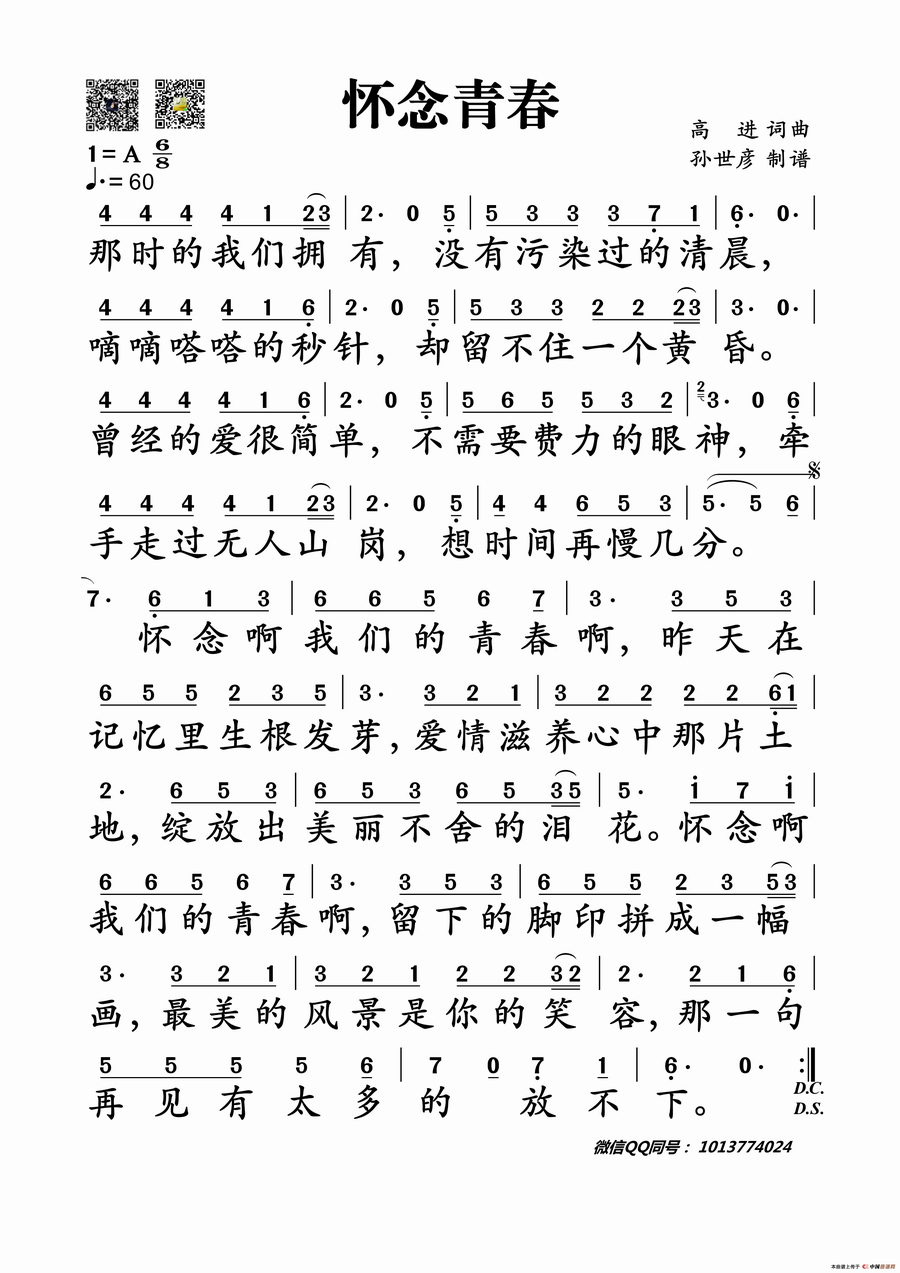 怀念青春
高 进 词曲
孙世彦 制谱
1=A 6/8
♩.=60
4 4 4 4 1 23 | 2· 0 5̣ | 5 3 3 3 7̣ 1 | 6̣· 0· |
那时的我们拥 有，没有污染过的清晨，
4 4 4 4 1 6̣ | 2· 0 5̣ | 5 3 3 2 2 23 | 3· 0· |
嘀嘀嗒嗒的秒针，却留不住一个黄 昏。
4 4 4 4 1 6̣ | 2· 0 5̣ | 5 6 5 5 3 2 | 2 3· 0 6̣ |
曾经的爱很简单，不需要费力的眼神，牵
4 4 4 4 1 23 | 2· 0 5̣ | 4 4 6 5 3 | 5· 5 6 |
手走过无人山 岗，想时间再慢几分。
7· 6̣ 1 3 | 6 6 5 6 7 | 3· 3 5 3 |
怀念啊我们的青春啊，昨天在
6 5 5 2 3 5 | 3· 3 2 1 | 3 2 2 2 2 6̣1 |
记忆里生根发芽，爱情滋养心中那片土
2· 6 5 3 | 6 5 3 6 5 35 | 5· 1̇ 7 1̇ |
地，绽放出美丽不舍的泪 花。怀念啊
6 6 5 6 7 | 3· 3 5 3 | 6 5 5 2 3 53 |
我们的青春啊，留下的脚印拼成一幅
3· 3 2 1 | 3 2 1 2 2 32 | 2· 2 1 6̣ |
画，最美的风景是你的笑 容，那一句
5 5 5 5 6 | 7 0 7̣ 1 | 6̣· 0· :|
再见有太多的 放不下。
D.C.
D.S.
微信QQ同号：1013774024
本曲谱上传于 中国曲谱网